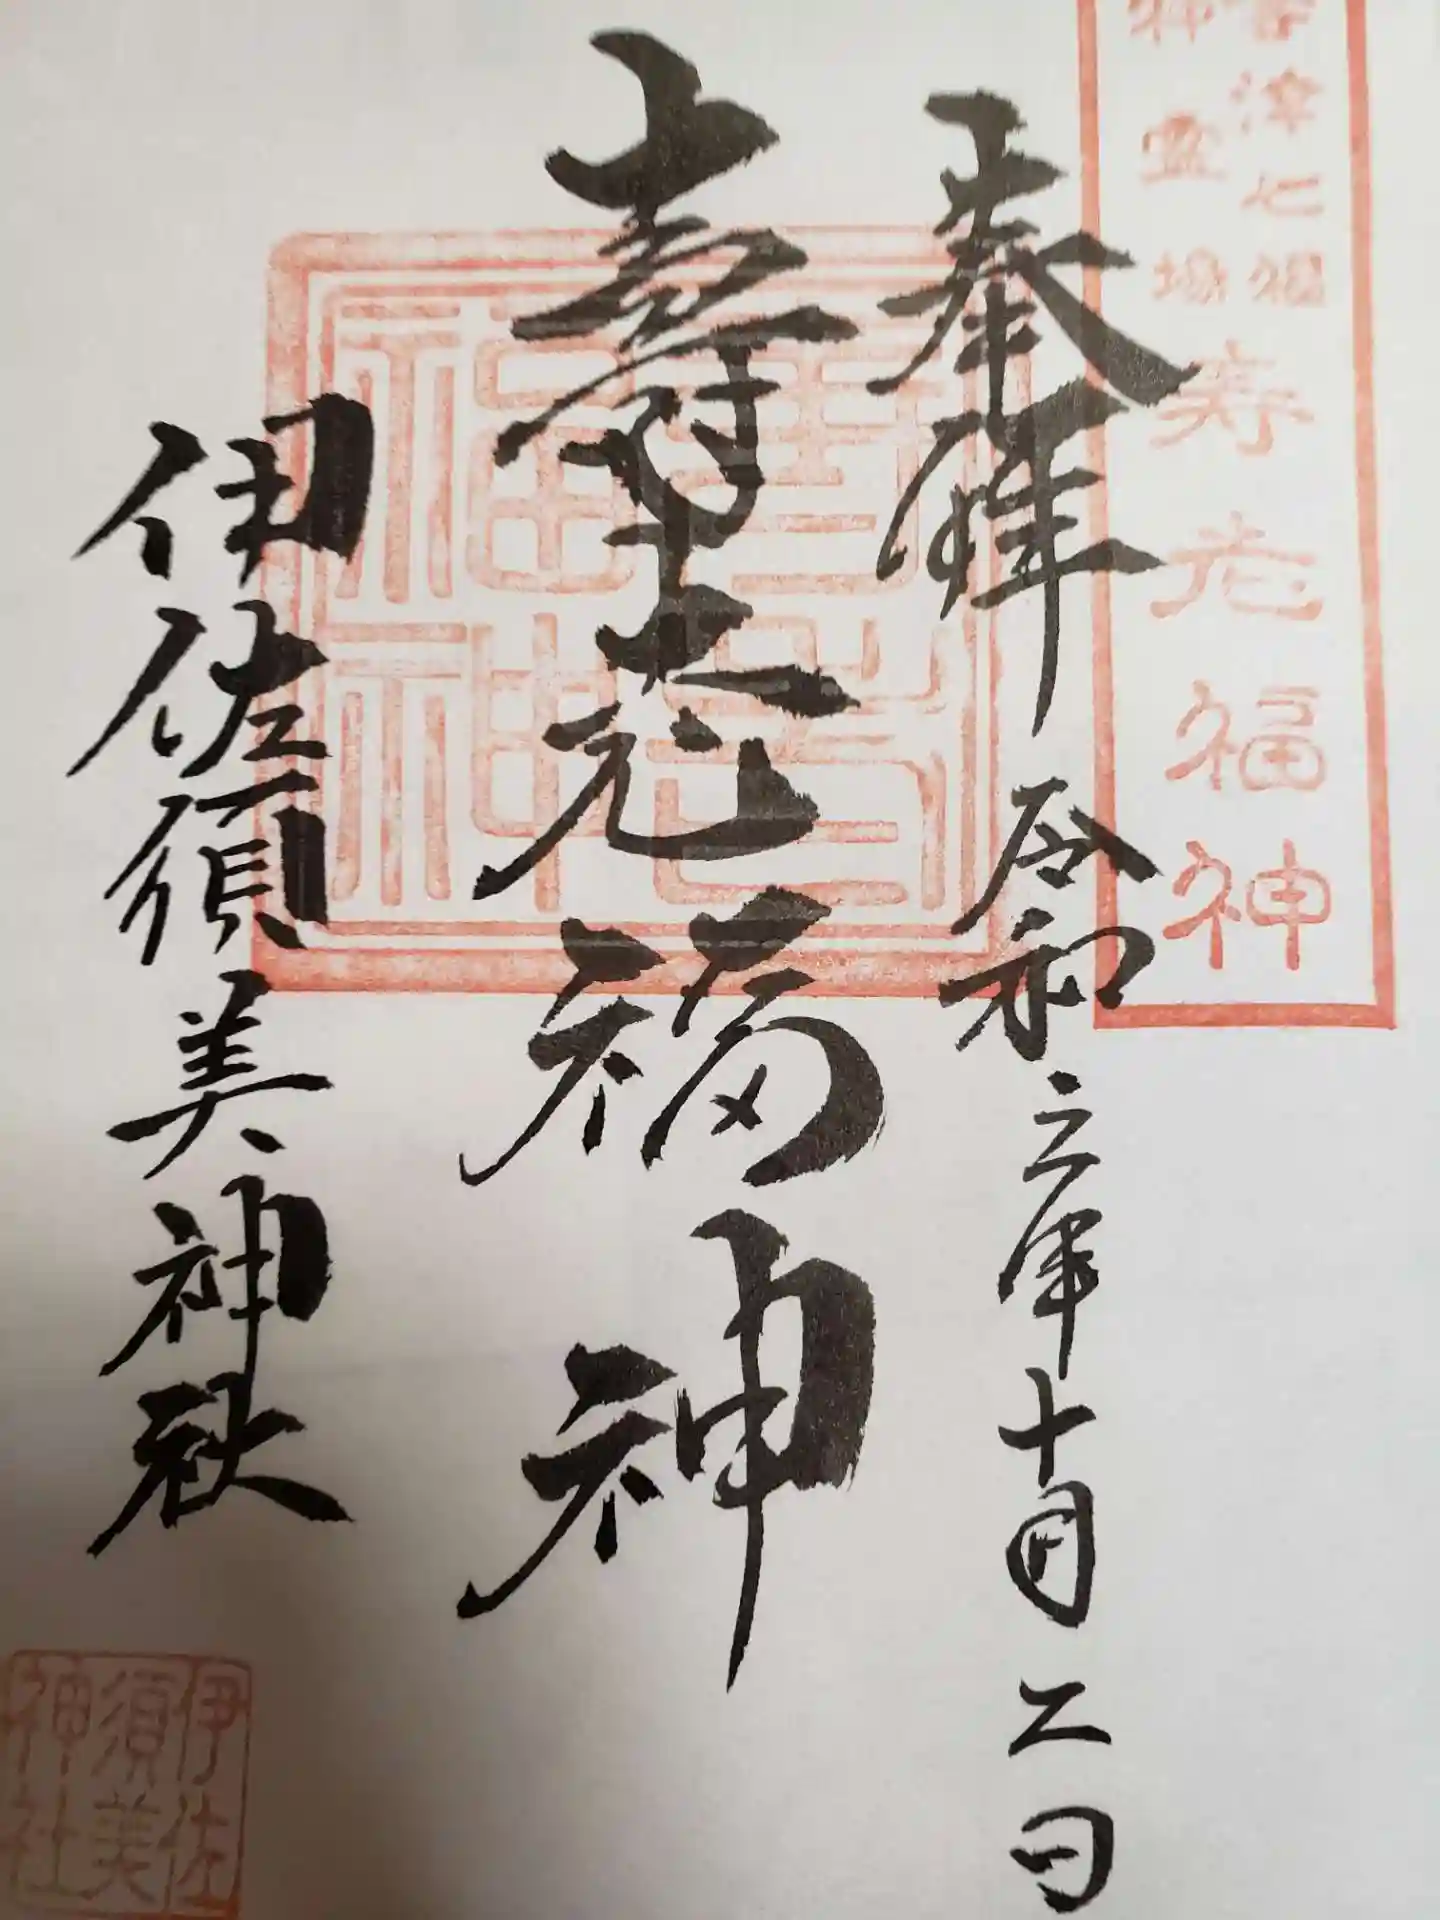 會津七福
神霊場
寿老福神
奉拝 令和三年十月二日
壽老福神
壽老
福神
伊佐須美神社
伊佐
須美
神社